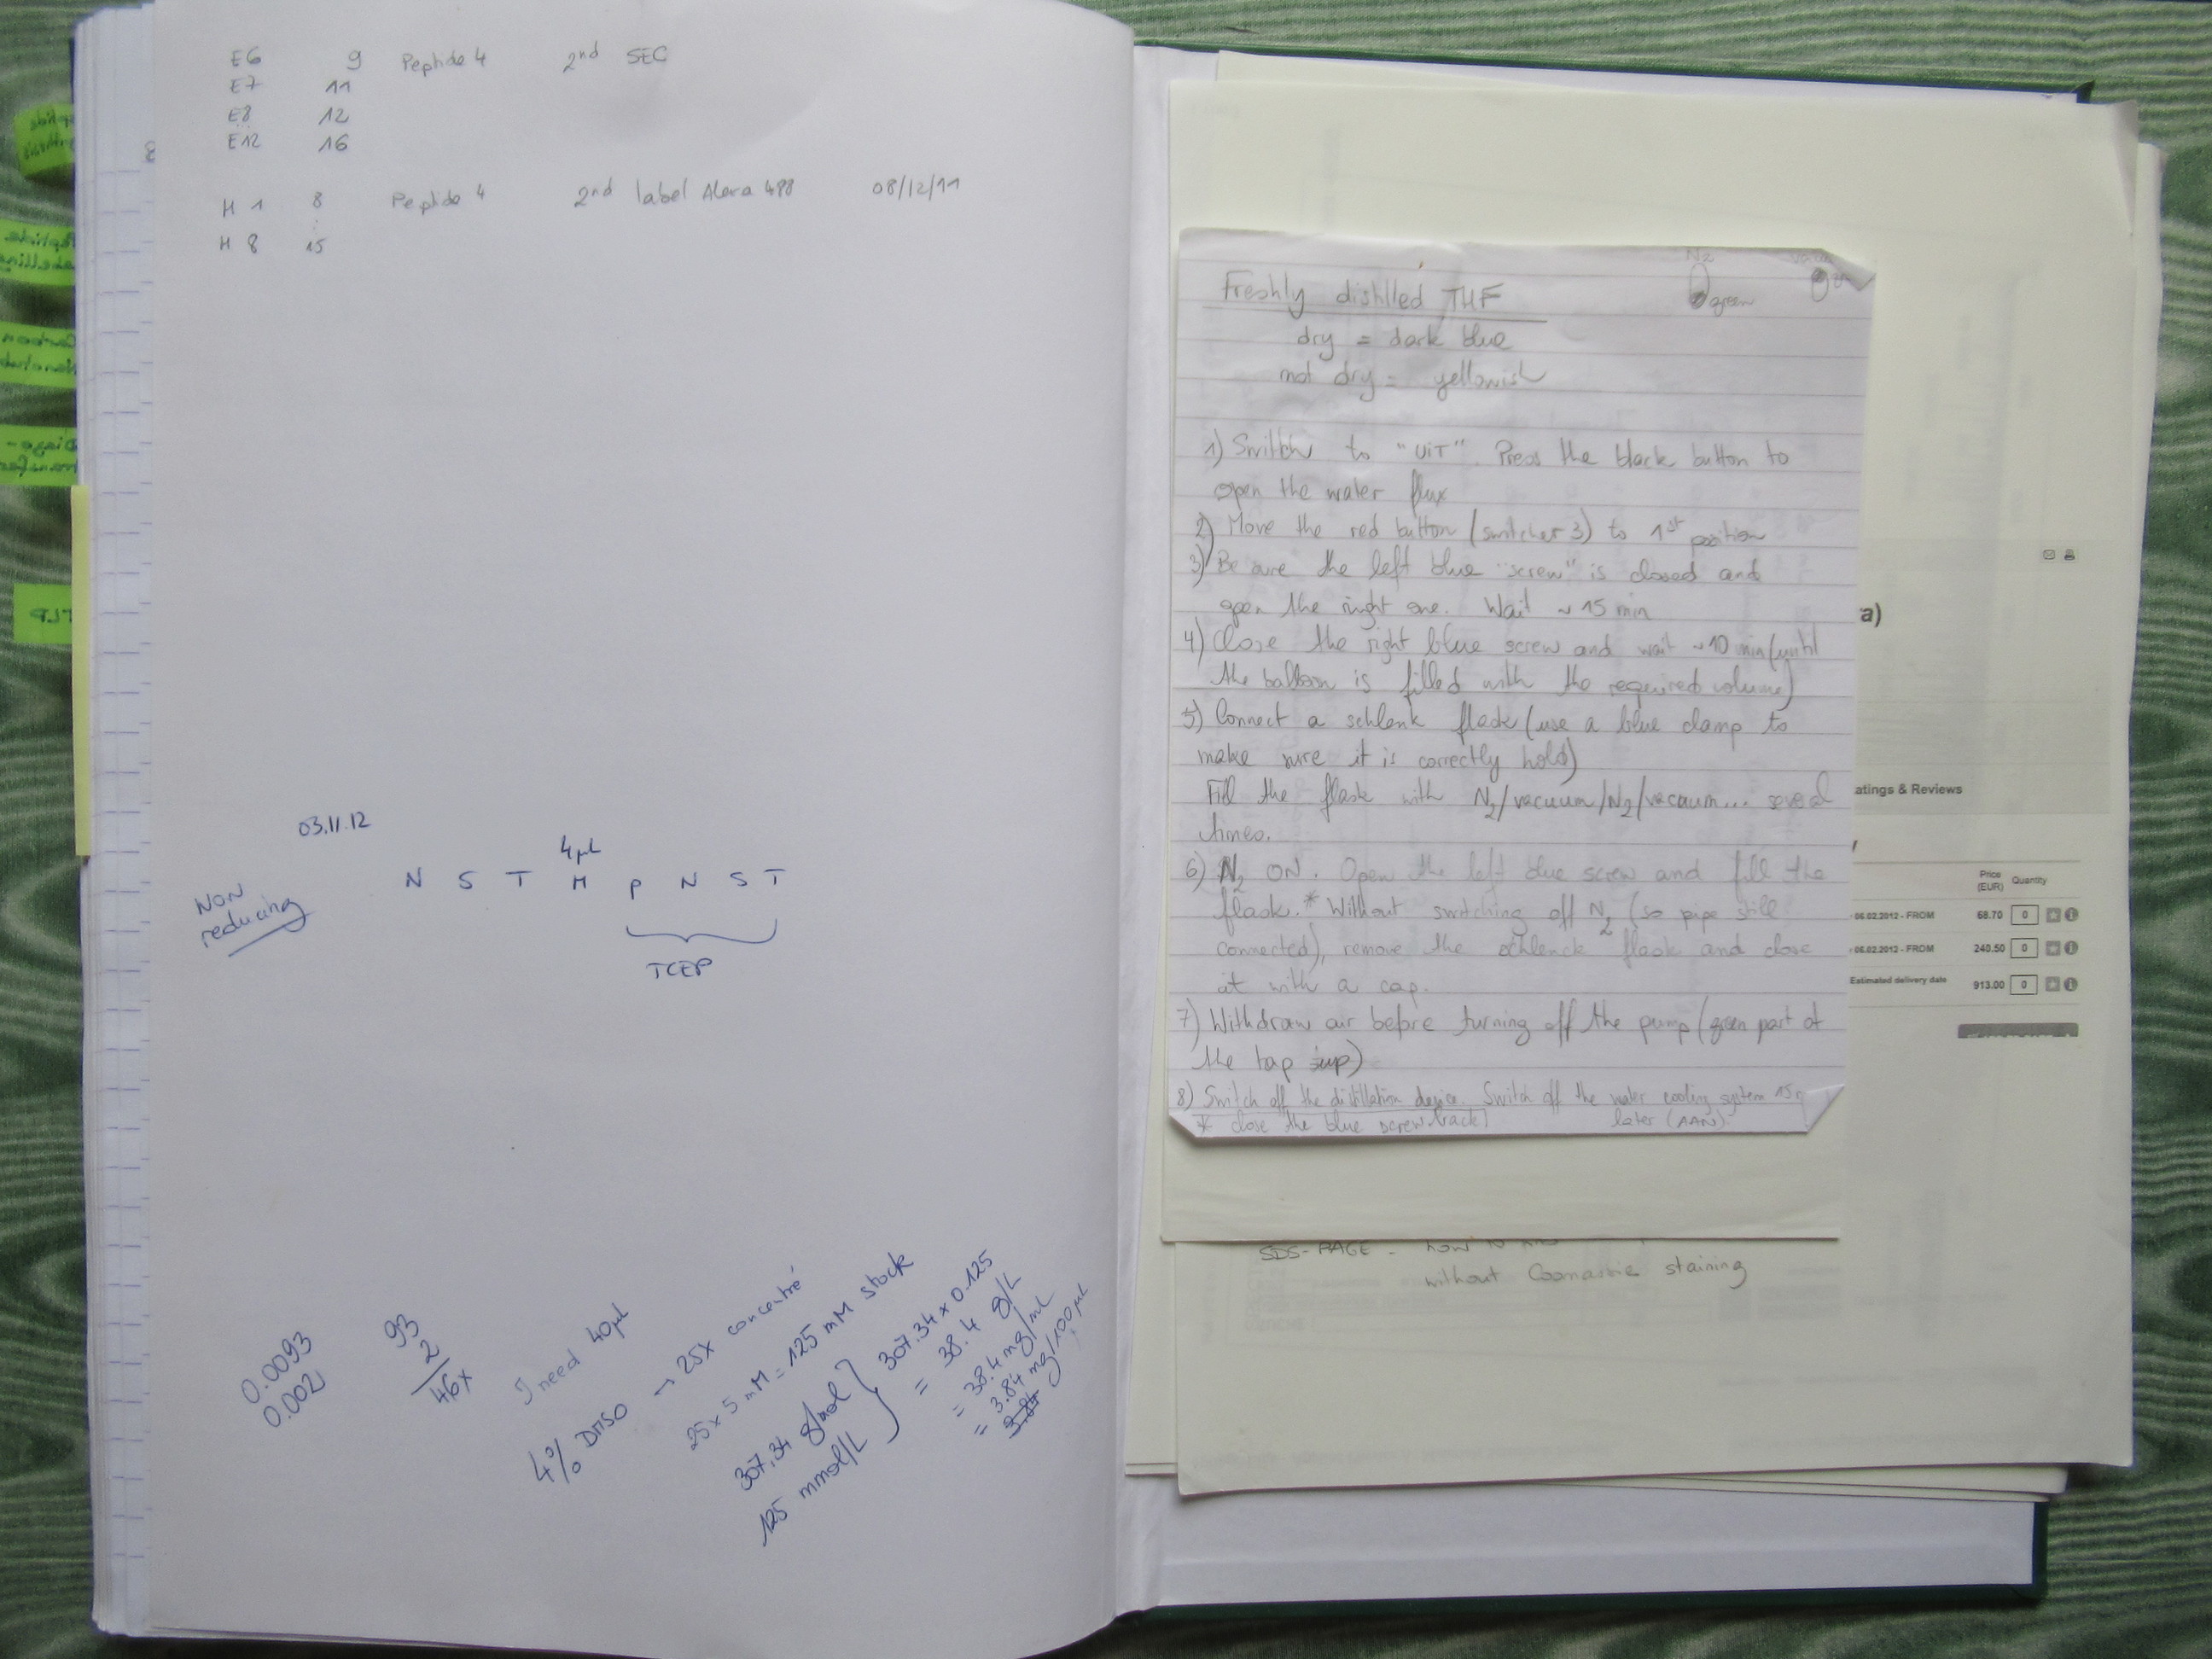 E6 9 Peptide 4 2nd SEC
E7 11
E8 12
E12 16
H 1 8 Peptide 4 2nd label Alexa 488 08/12/11
H 8 15
03.11.12
4µl
N S T M P N S T
NON
reducing
TCEP
0.0093
0.002
93
2
46x
I need 40µl
4% DMSO → 25x concentré
25x 5 mM = 125 mM stock
307.34 g/mol
125 mmol/L
307.34 x 0.125
= 38.4 g/L
= 38.4 mg/mL
= 3.84 mg/100µL
Freshly distilled THF
N2
green
dry = dark blue
not dry = yellowish
1) Switch to "UIT". Press the black button to
open the water flux
2) Move the red button (switcher 3) to 1st position
3) Be sure the left blue "screw" is closed and
open the right one. Wait ~ 15 min
4) Close the right blue screw and wait ~10 min (until
the balloon is filled with the required volume)
5) Connect a schlenk flask (use a blue clamp to
make sure it is correctly hold)
Fill the flask with N2/vacuum/N2/vacuum... several
times.
6) N2 ON. Open the left blue screw and fill the
flask.* Without switching off N2 (so pipe still
connected), remove the schlenck flask and close
it with a cap.
7) Withdraw air before turning off the pump (green part of
the tap up)
8) Switch off the distillation device. Switch off the water cooling system 15
* close the blue screw back
later (AAN).
a)
atings & Reviews
Price
(EUR) Quantity
06.02.2012 - FROM 68.70 0
06.02.2012 - FROM 240.50 0
Estimated delivery date 913.00 0
SDS-PAGE - how to
without Coomassie staining